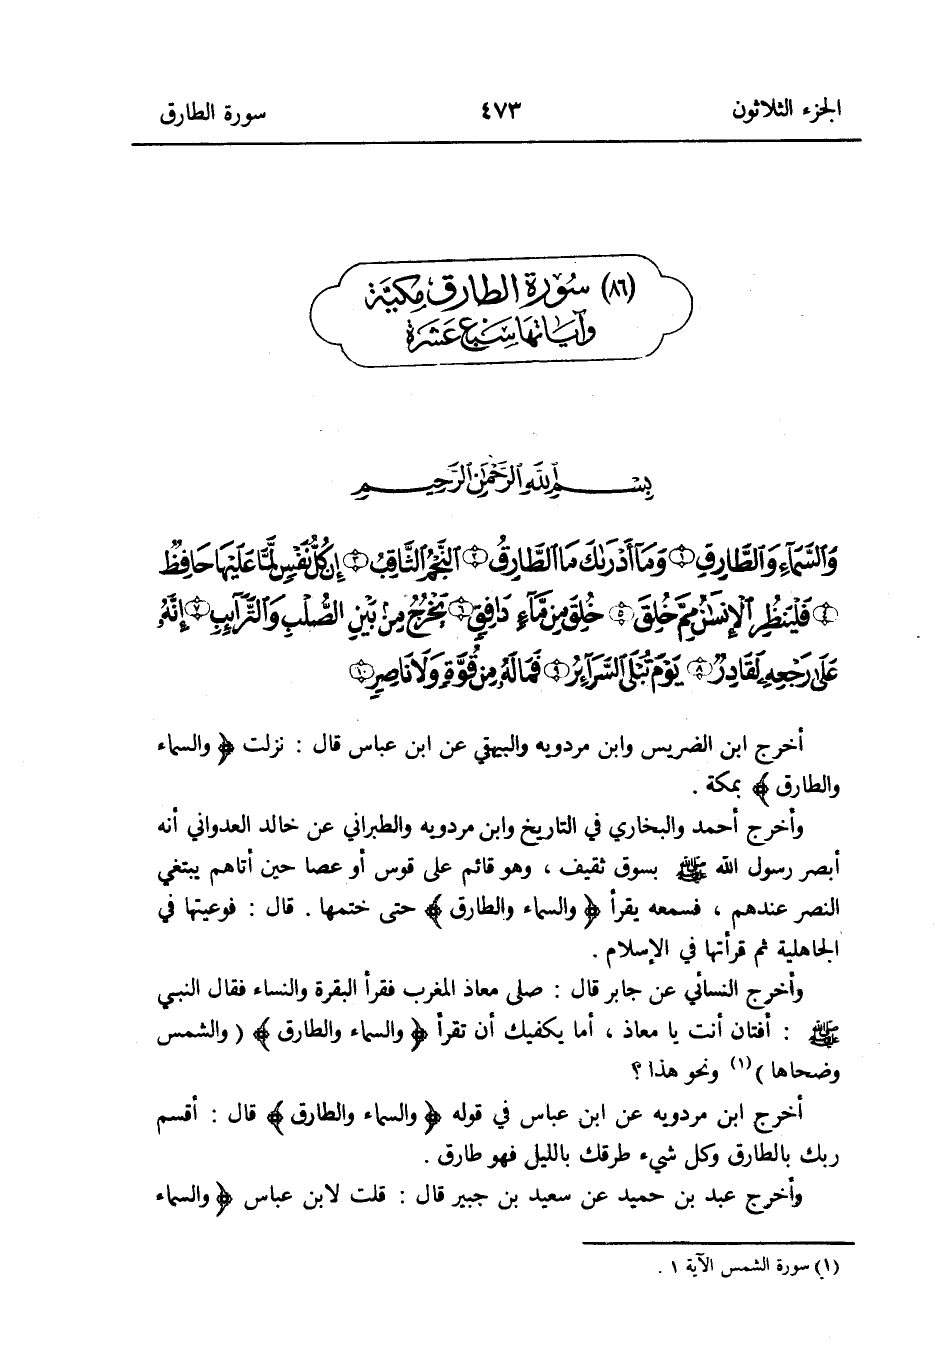 الجزء الثلاثون ٤٧٣ سورة الطارق
(٨٦) سُورَة الطارق مِكيَّة
وآيَاتهَا سَبْع عَشَرَة
بِسْمِ ٱللَّهِ ٱلرَّحْمَٰنِ ٱلرَّحِيمِ
وَٱلسَّمَآءِ وَٱلطَّارِقِ ﴿١﴾ وَمَآ أَدْرَىٰكَ مَا ٱلطَّارِقُ ﴿٢﴾ ٱلنَّجْمُ ٱلثَّاقِبُ ﴿٣﴾ إِن كُلُّ نَفْسٍ لَّمَّا عَلَيْهَا حَافِظٌ
﴿٤﴾ فَلْيَنظُرِ ٱلْإِنسَٰنُ مِمَّ خُلِقَ ﴿٥﴾ خُلِقَ مِن مَّآءٍ دَافِقٍ ﴿٦﴾ يَخْرُجُ مِنۢ بَيْنِ ٱلصُّلْبِ وَٱلتَّرَآئِبِ ﴿٧﴾ إِنَّهُۥ
عَلَىٰ رَجْعِهِۦ لَقَادِرٌ ﴿٨﴾ يَوْمَ تُبْلَى ٱلسَّرَآئِرُ ﴿٩﴾ فَمَا لَهُۥ مِن قُوَّةٍ وَلَا نَاصِرٍ ﴿١٠﴾
أخرج ابن الضريس وابن مردويه والبيهقي عن ابن عباس قال : نزلت ﴿ والسماء
والطارق ﴾ بمكة .
وأخرج أحمد والبخاري في التاريخ وابن مردويه والطبراني عن خالد العدواني أنه
أبصر رسول الله ﷺ بسوق ثقيف ، وهو قائم على قوس أو عصا حين أتاهم يبتغي
النصر عندهم ، فسمعه يقرأ ﴿ والسماء والطارق ﴾ حتى ختمها . قال : فوعيتها في
الجاهلية ثم قرأتها في الإسلام .
وأخرج النسائي عن جابر قال : صلى معاذ المغرب فقرأ البقرة والنساء فقال النبي
ﷺ : أفتان أنت يا معاذ ، أما يكفيك أن تقرأ ﴿ والسماء والطارق ﴾ ( والشمس
وضحاها )(١) ونحو هذا ؟
أخرج ابن مردويه عن ابن عباس في قوله ﴿ والسماء والطارق ﴾ قال : أقسم
ربك بالطارق وكل شيء طرقك بالليل فهو طارق .
وأخرج عبد بن حميد عن سعيد بن جبير قال : قلت لابن عباس ﴿ والسماء
(١) سورة الشمس الآية ١ .